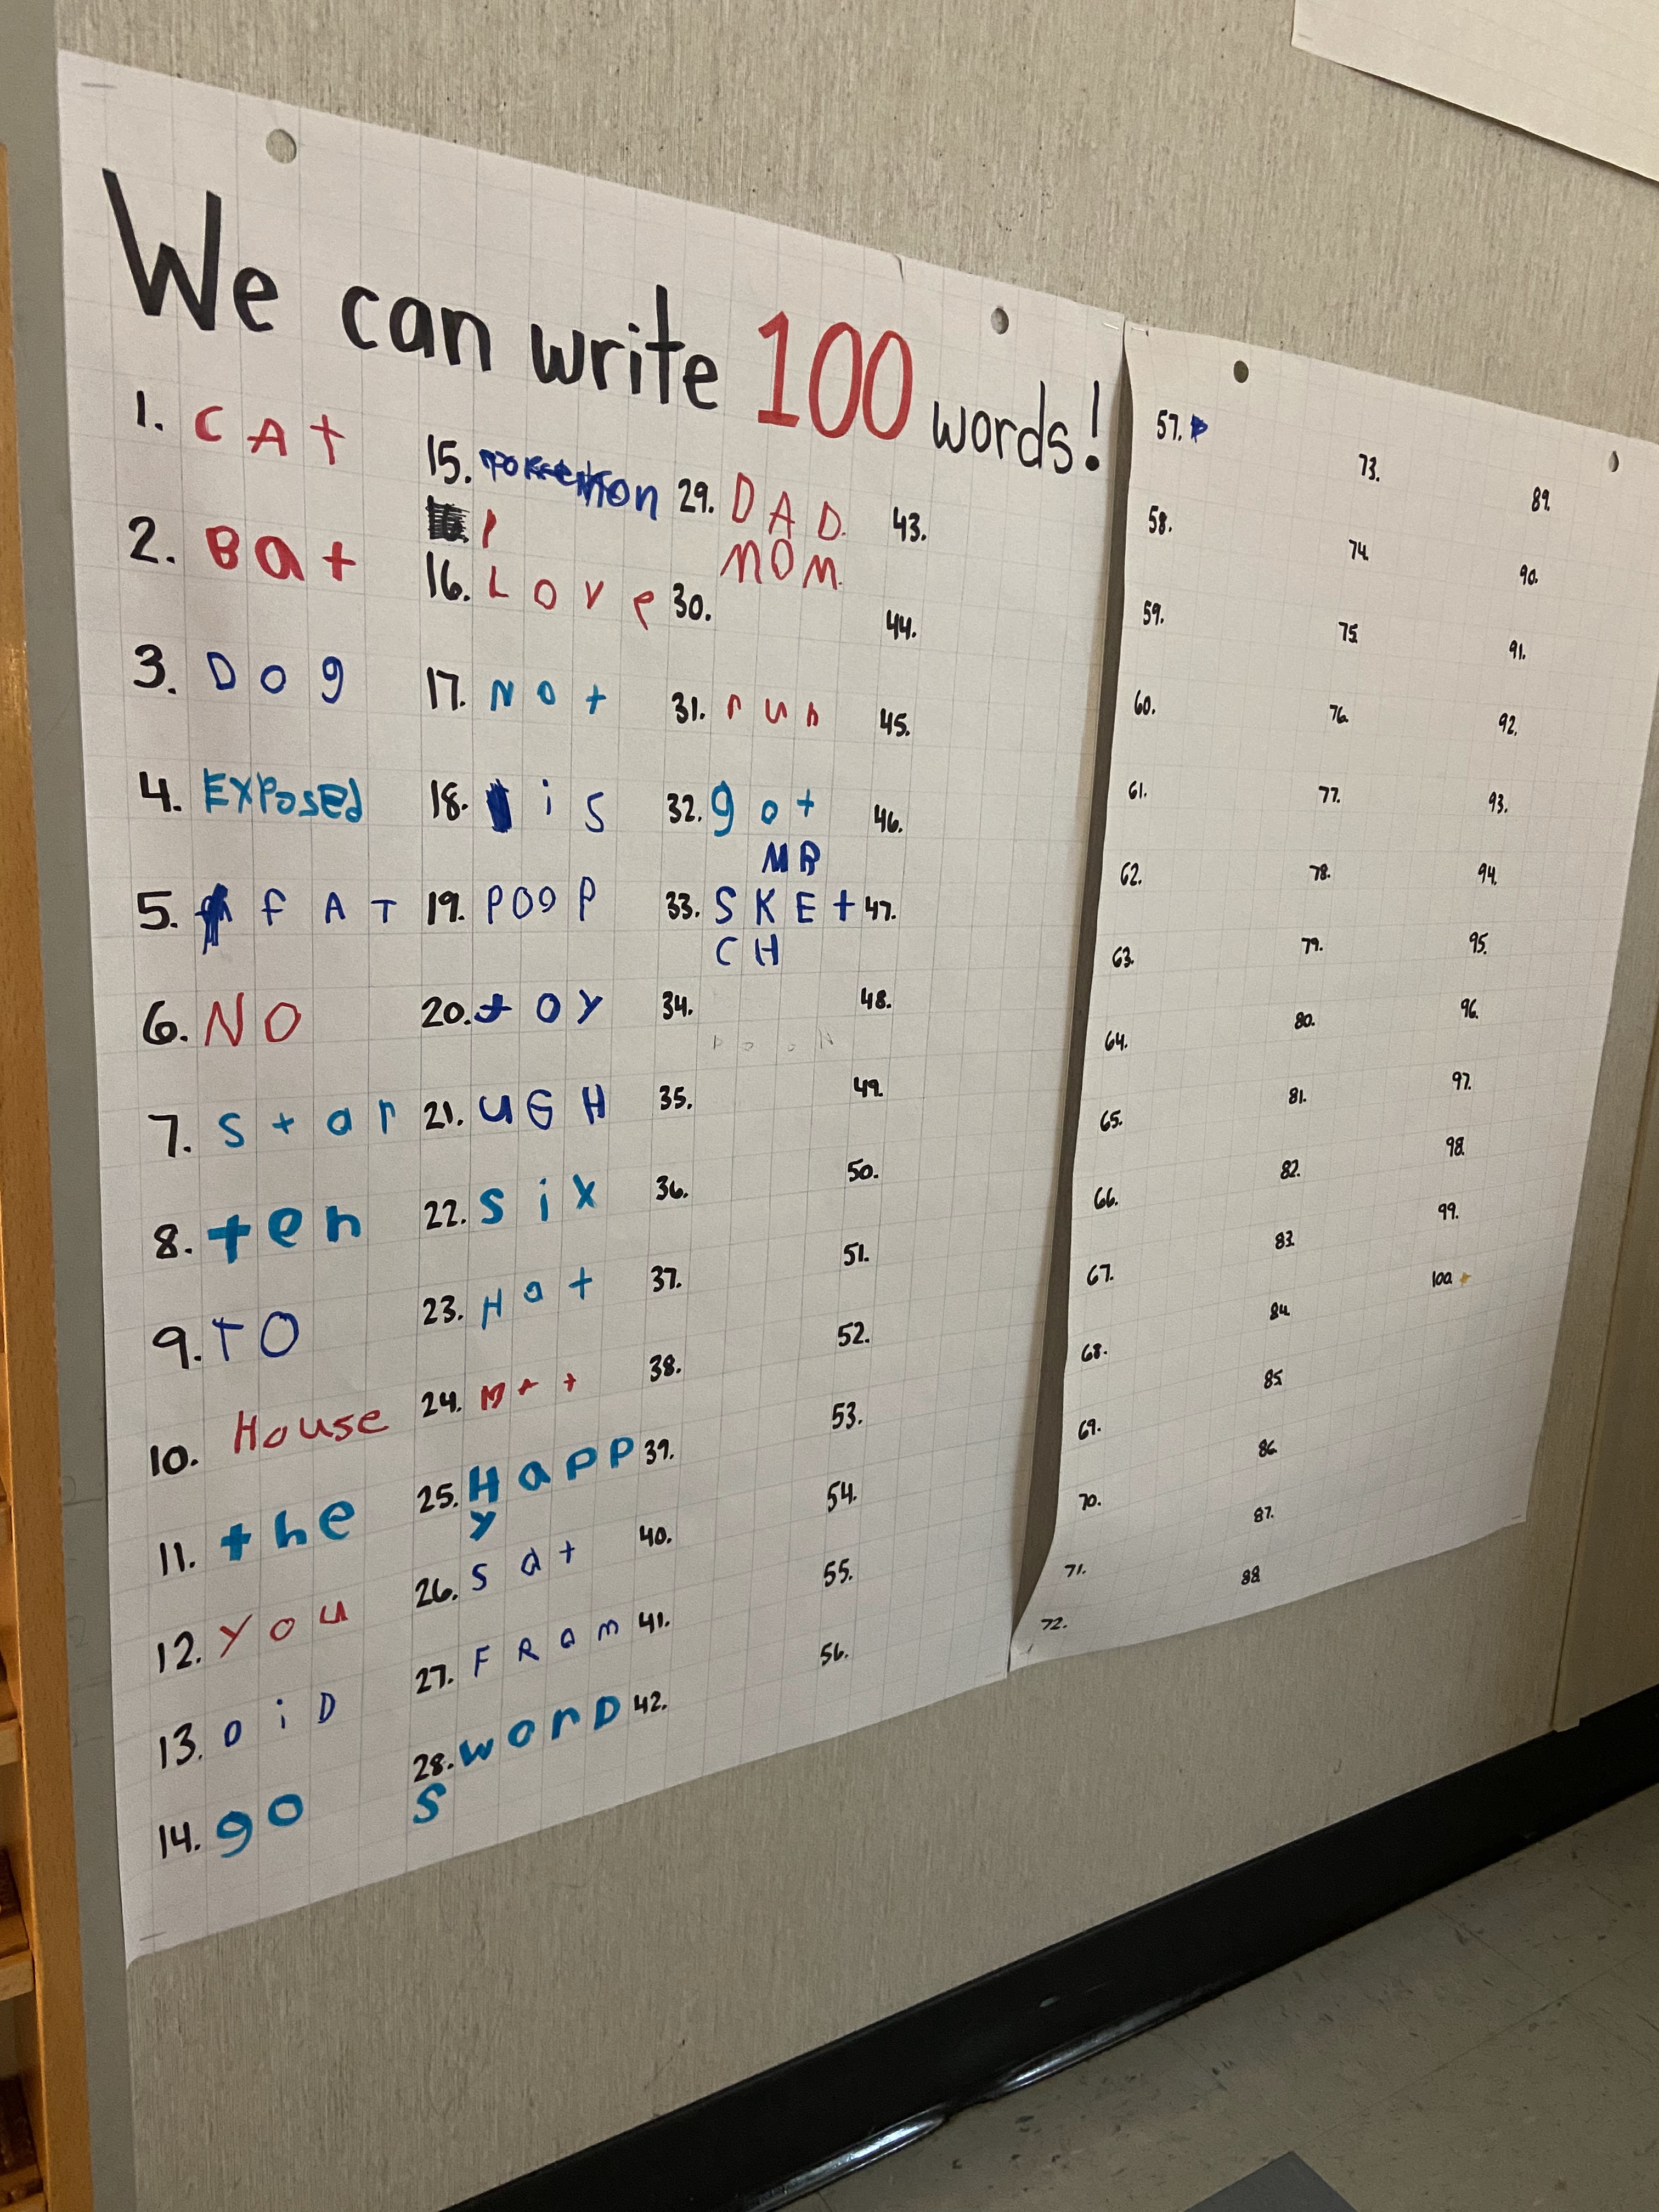 We can write 100 words!
1. CAt
2. Bat
3. Dog
4. ExPosEd
5. fAT
6. NO
7. star
8. ten
9. TO
10. House
11. the
12. You
13. DiD
14. go
15.
I
16. Love
17. Not
18. is
19. POOP
20. toy
21. UGH
22. six
23. Hat
24. MAt
25. Happ
y
26. sat
27. FRam
28. worD
S
29. DAD.
MOM.
30.
31. run
32. got
MB
33. SKEt
CH
34.
35.
36.
37.
38.
39.
40.
41.
42.
43.
44.
45.
46.
47.
48.
49.
50.
51.
52.
53.
54.
55.
56.
57.
58.
59.
60.
61.
62.
63.
64.
65.
66.
67.
68.
69.
70.
71.
72.
73.
74.
75.
76.
77.
78.
79.
80.
81.
82.
83.
84.
85.
86.
87.
88.
89.
90.
91.
92.
93.
94.
95.
96.
97.
98.
99.
100.